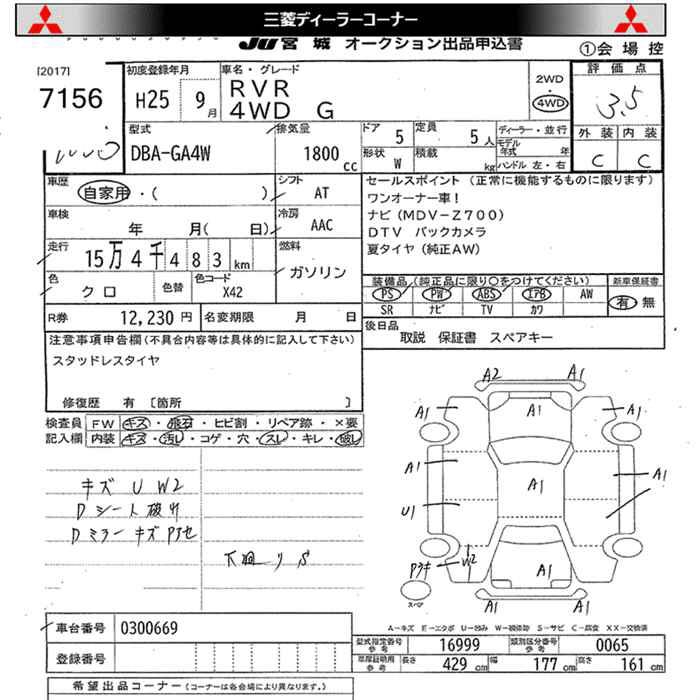 三菱ディーラーコーナー
JU宮城 オークション出品申込書
①会場控
[2017]
7156
初度登録年月
H25 9月
車名・グレード
RVR
4WD G
2WD
・
4WD
評価点
3.5
型式
DBA-GA4W
排気量
1800 cc
ドア 5
定員 5人
形状 W
積載 kg
ディーラー・並行
モデル年式 年
ハンドル 左・右
外装 内装
C C
車歴 自家用・( )
シフト AT
車検 年 月( 日)
冷房 AAC
走行 15万4千483km
燃料 ガソリン
色 クロ
色替
色コード X42
R券 12,230円
名変期限 月 日
セールスポイント (正常に機能するものに限ります)
ワンオーナー車!
ナビ(MDV-Z700)
DTV バックカメラ
夏タイヤ(純正AW)
装備品(純正品に限り○をつけてください)
PS PW ABS エアB AW
SR ナビ TV カワ
新車保証書
有 無
後日品
取説 保証書 スペアキー
注意事項申告欄(不具合内容等は具体的に記入して下さい)
スタッドレスタイヤ
修復歴 有 [箇所 ]
検査員記入欄
FW キズ・飛石・ヒビ割・リペア跡・×要
内装 キズ・汚し・コゲ・穴・スレ・キレ・破し
キズ U W2
Dシート破れ
Dミラーキズ
下廻り S
A2 A1
A1 A1 A1
A1 A1 A1
U1 A1
W2
A1 A1
A1
スペア
A-キズ E-エクボ U-凹み W-補修跡 S-サビ C-腐食 XX-交換済
車台番号 0300669
登録番号
型式指定番号 参考 16999
類別区分番号 参考 0065
車庫証明用 参考 長さ 429cm 幅 177cm 高さ 161cm
希望出品コーナー(コーナーは各会場により異なります。)